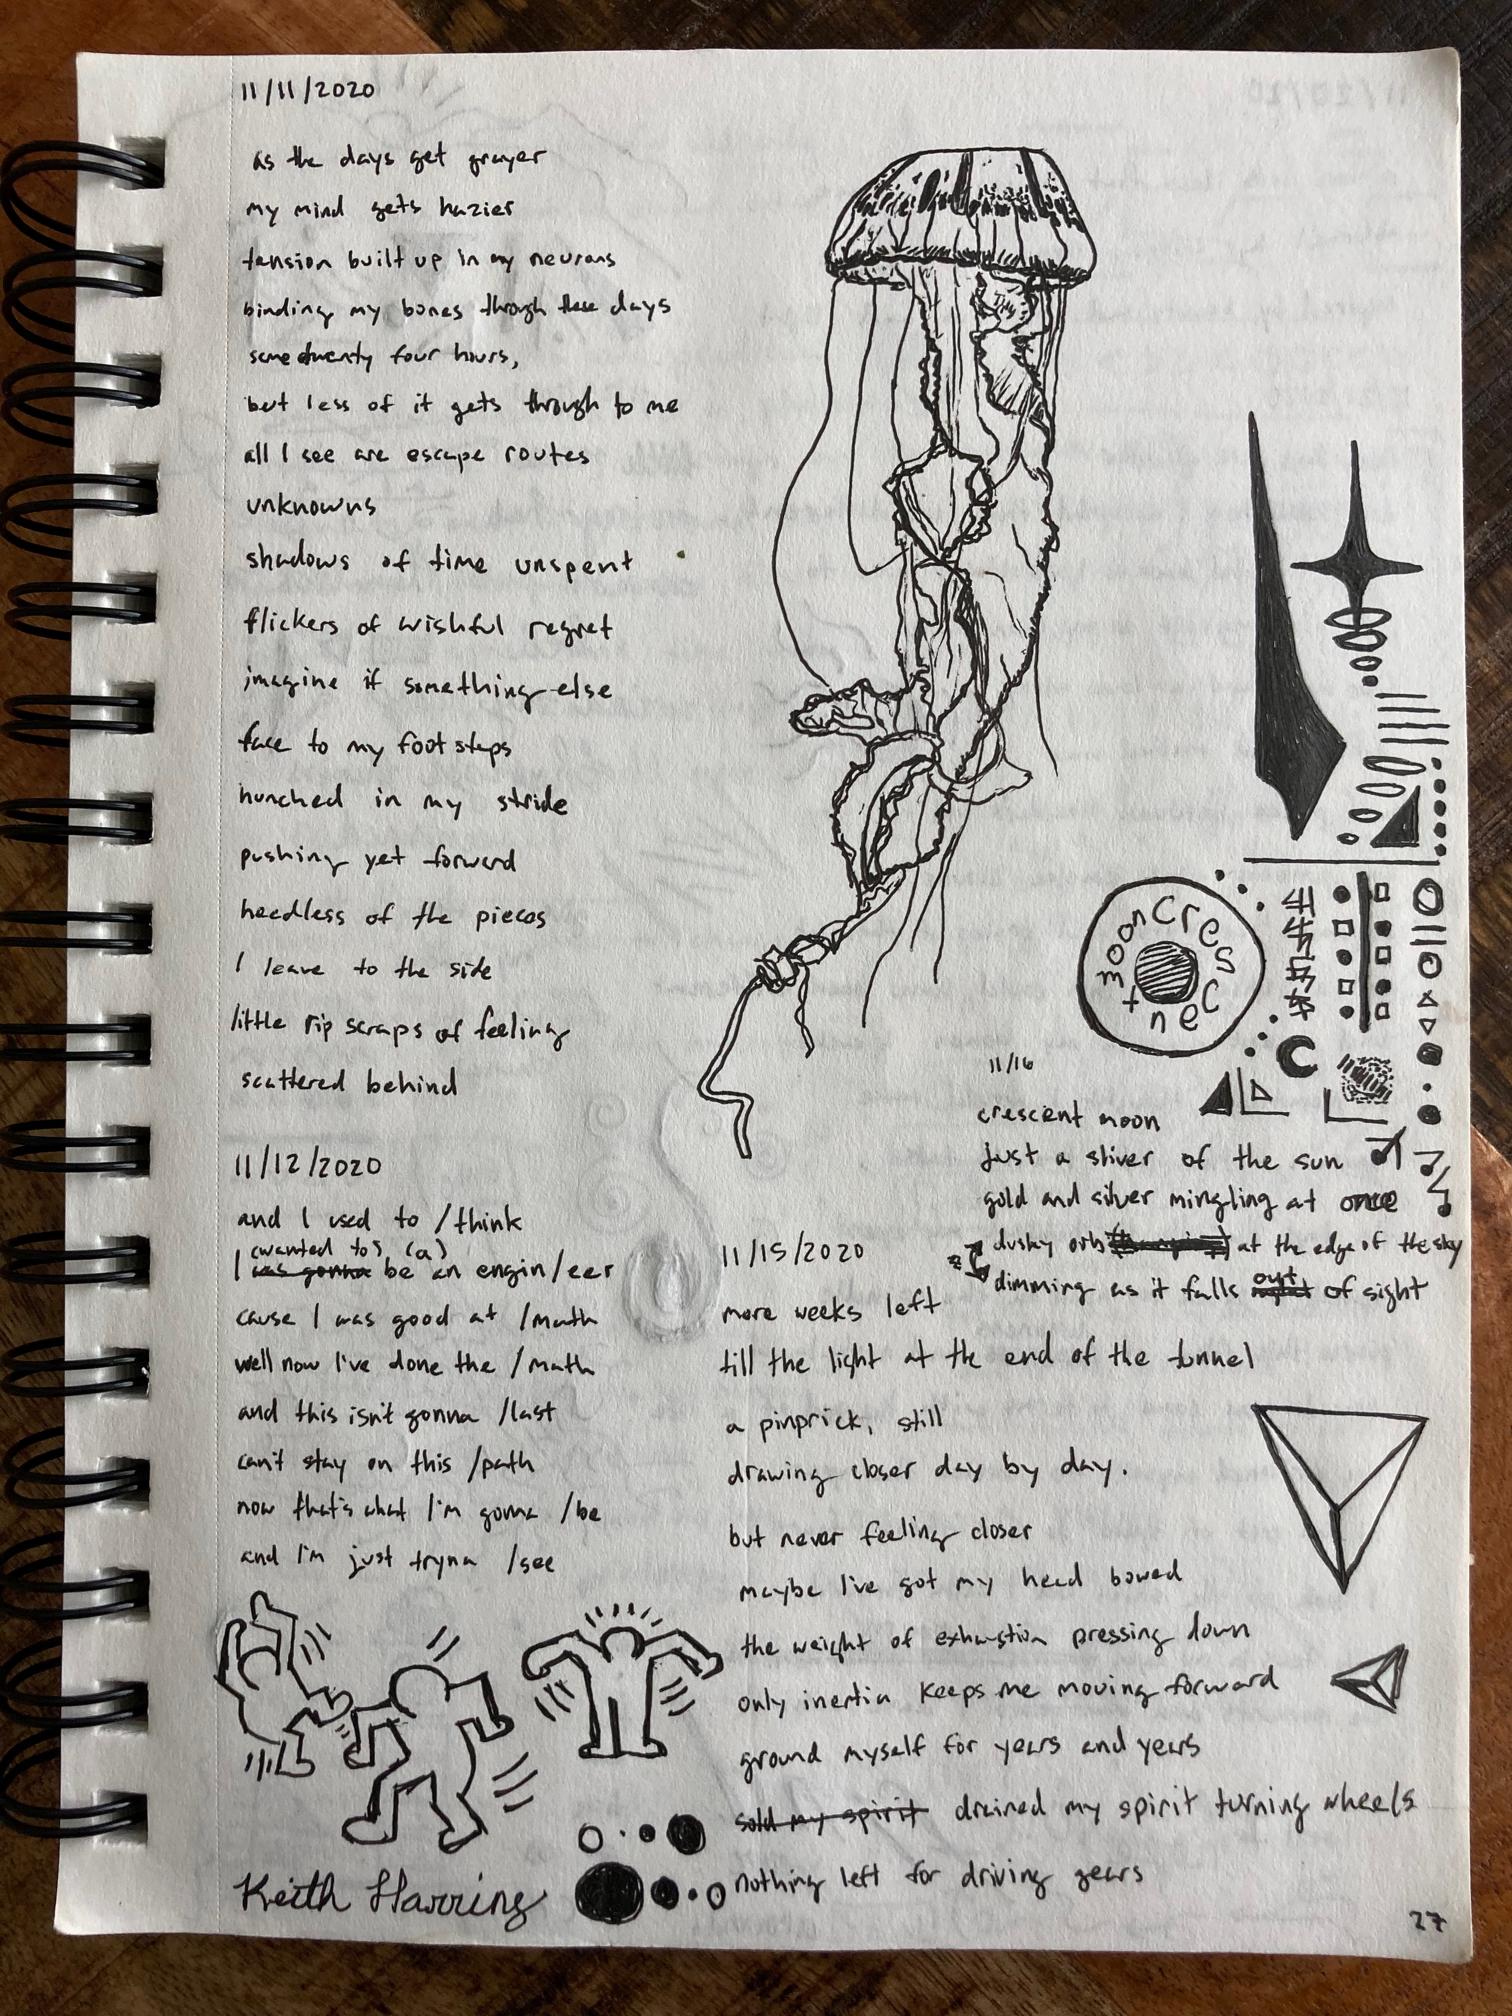 11/11/2020
as the days get grayer
my mind gets hazier
tension built up in my neurons
binding my bones through these days
same twenty four hours,
but less of it gets through to me
all I see are escape routes
unknowns
shadows of time unspent
flickers of wishful regret
imagine if something else
face to my footsteps
hunched in my stride
pushing yet forward
heedless of the pieces
I leave to the side
little rip scraps of feeling
scattered behind
11/12/2020
and I used to /think
(wanted to) (a)
I was gonna be an engin/eer
cause I was good at /math
well now I've done the /math
and this isn't gonna /last
can't stay on this /path
now that's what I'm gonna /be
and I'm just tryna /see
Keith Harring
moon Crescent
11/16
crescent moon
just a sliver of the sun
gold and silver mingling at once
dusky orb at the edge of the sky
dimming as it falls out of sight
11/15/2020
more weeks left
till the light at the end of the tunnel
a pinprick, still
drawing closer day by day.
but never feeling closer
maybe I've got my head bowed
the weight of exhaustion pressing down
only inertia keeps me moving forward
ground myself for years and years
sold my spirit drained my spirit turning wheels
nothing left for driving gears
27